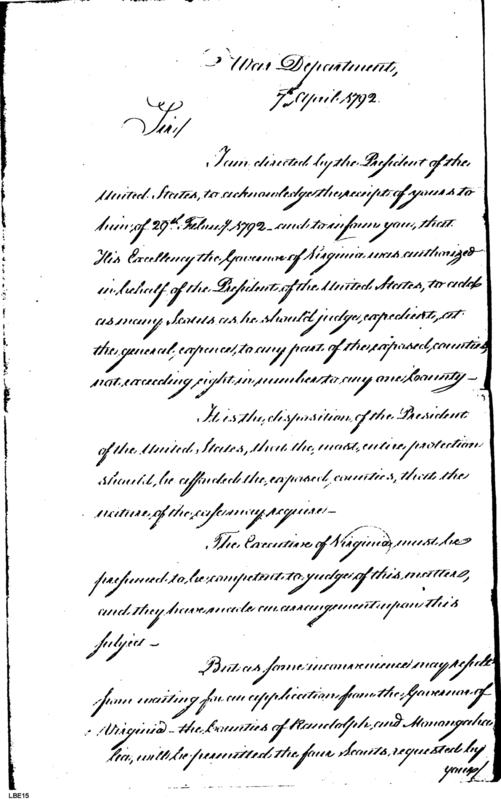 War Department,
7th April 1792.
Sir/
I am directed by the President of the
United States, to acknowledge the receipt of yours to
him, of 29th Feb'ruy 1792 – and to inform you, that
His Excellency the Governor of Virginia was authorized
in behalf of the President of the United States, to add
as many Scouts as he should judge, expedient, at
the general, expence, to any part of the exposed counties,
not exceeding eight in number to any one County –
It is the disposition of the President
of the United States, that the most entire protection
should, be afforded the exposed counties, that the
nature of the case may require –
The Executive of Virginia, must be
presumed to be competent to judge of this matter,
and they have made an arrangement upon this
subject –
But as some inconvenience may result
from waiting for an application from the Governor of
Virginia – the Counties of Randolph, and Monongaha
lia, will be permitted the four Scouts, requested by
you/
LBE15